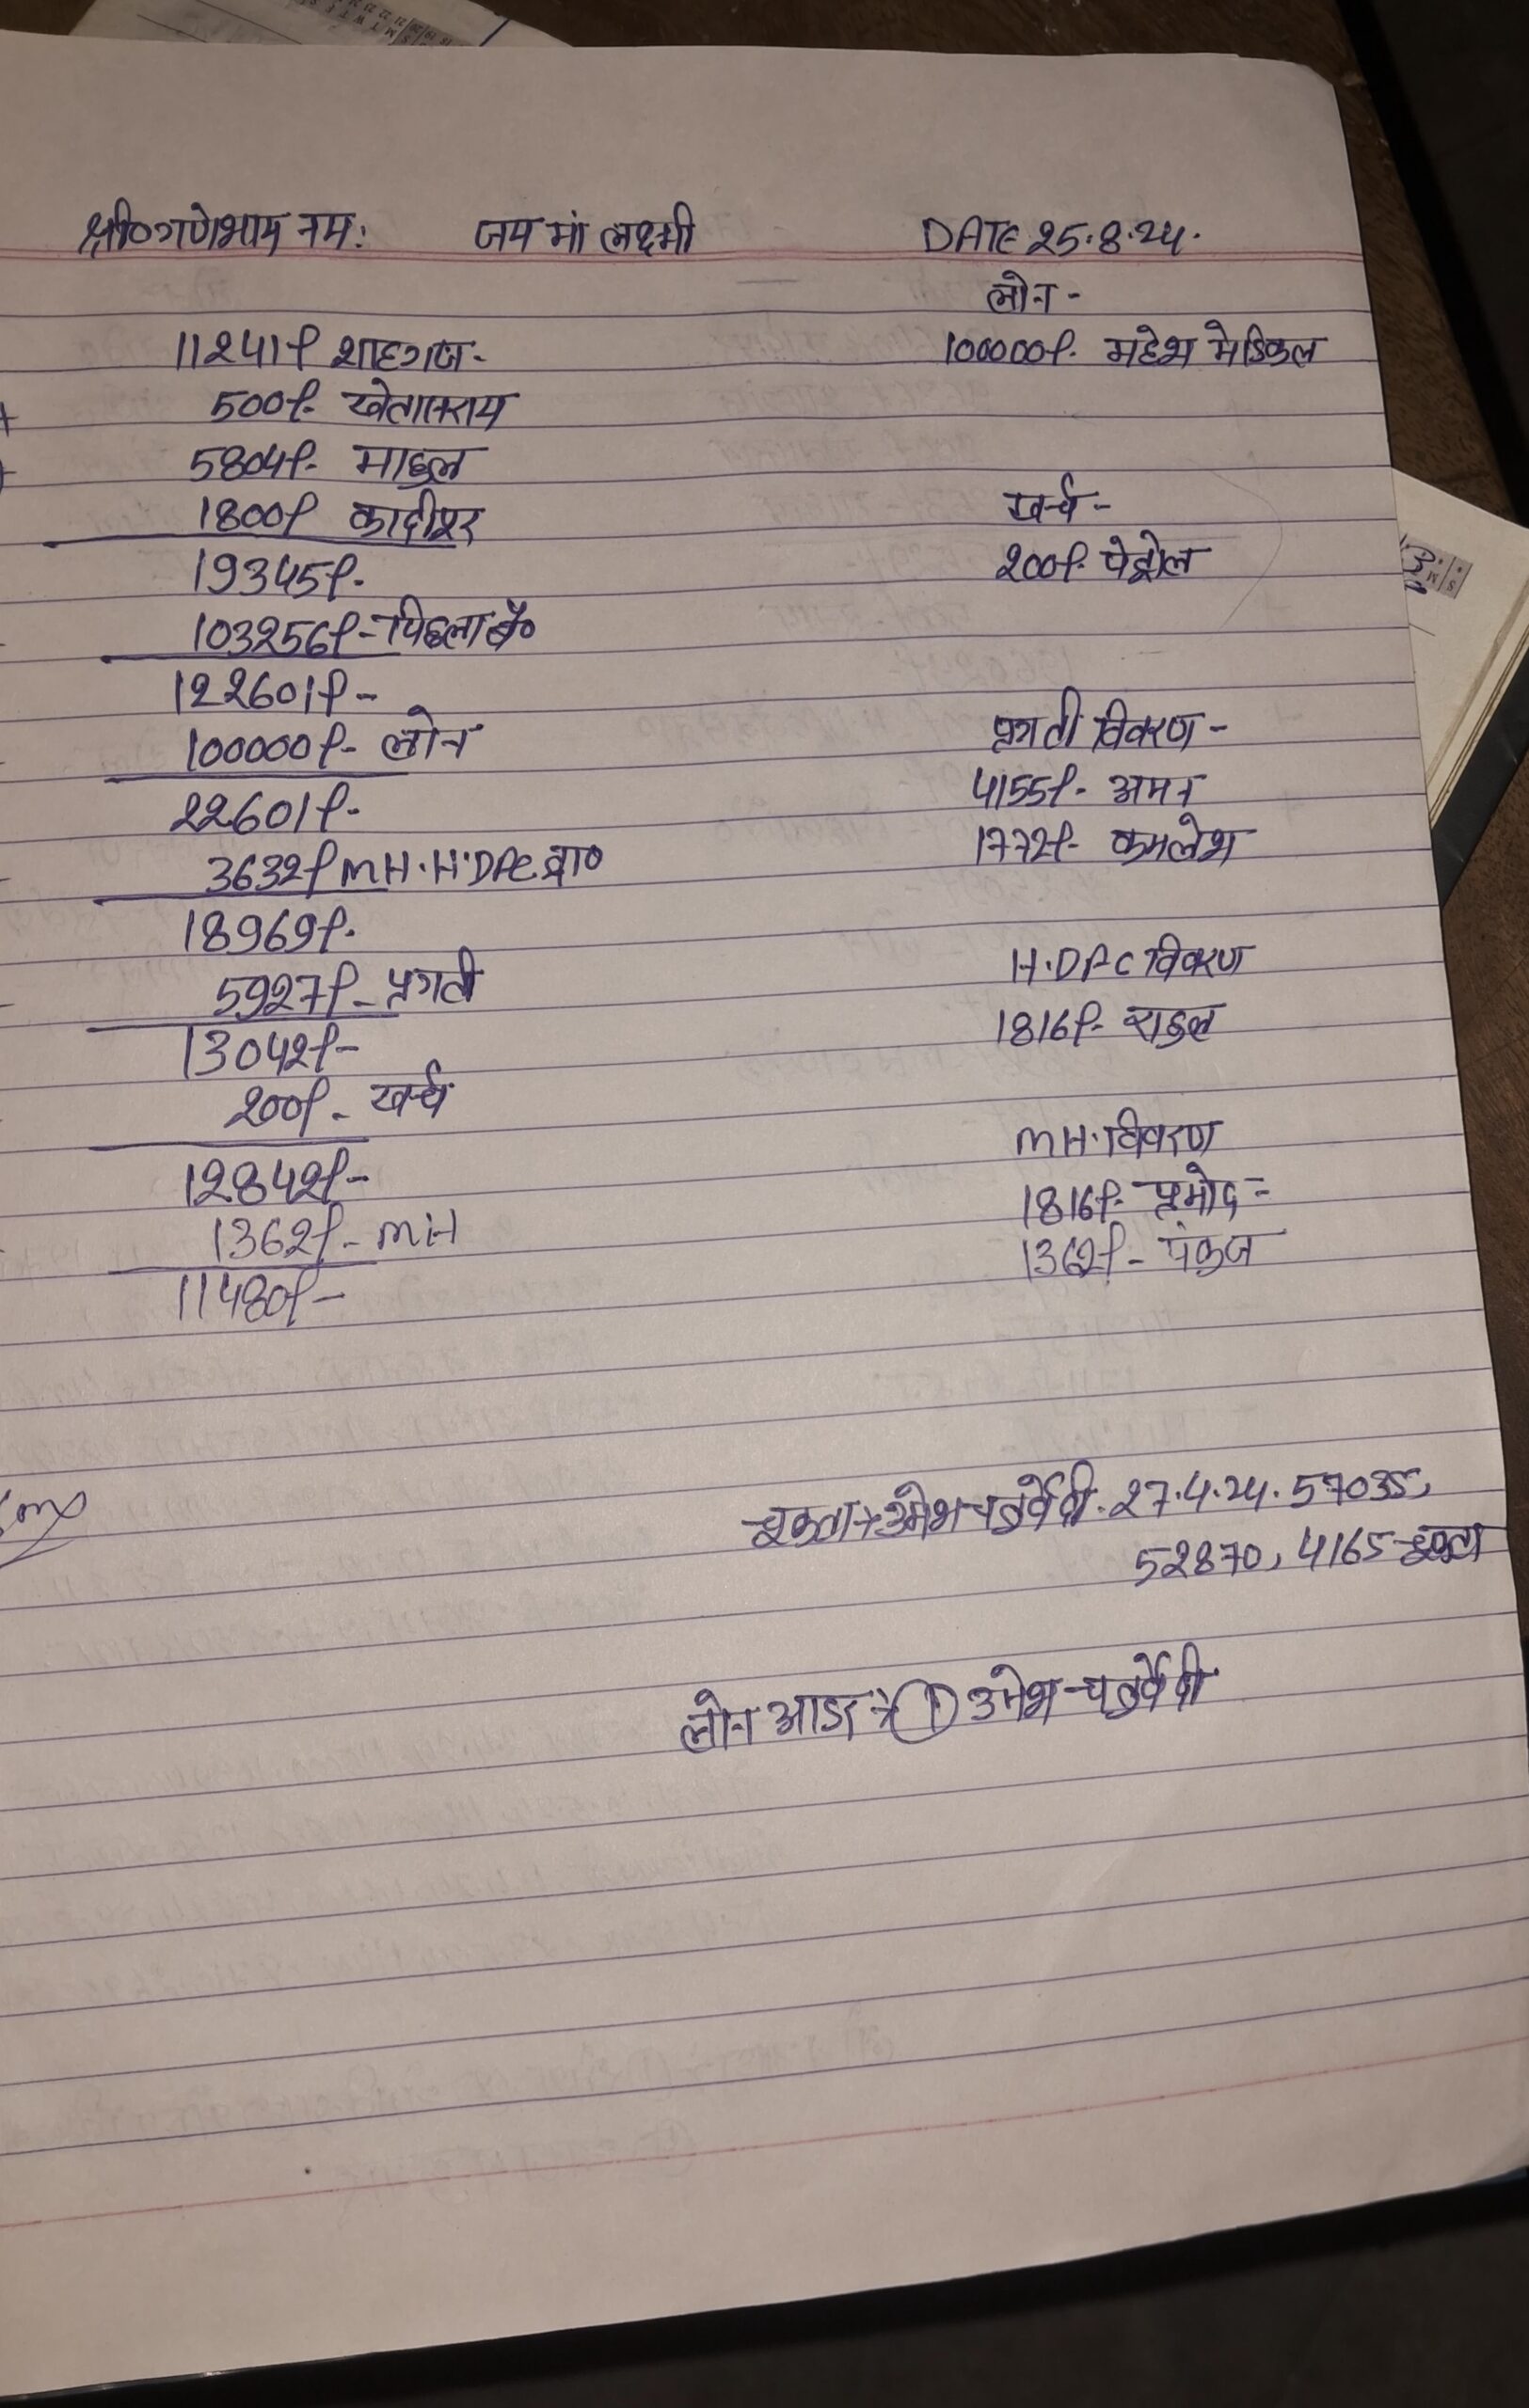 श्री०गणेशाय नमः जय मां लक्ष्मी DATE 25.8.24.
11241/- शाहगज-
500/- खेतासराय
5804/- माहुल
1800/- कादीपुर
19345/-
103256/- पिछला बै०
122601/-
100000/- लोन
22601/-
3632/- MH.H.DPC ब्रा०
18969/-
5927/- प्रगती
13042/-
200/- खर्च
12842/-
1362/- MH
11480/-
लोन-
100000/- महेश मेडिकल
खर्च-
200/- पेट्रोल
प्रगती विवरण-
4155/- अमन
1772/- कमलेश
H.DPC विवरण
1816/- राहुल
MH.विवरण
1816/- प्रमोद=
1362/- पंकज
चुकता→ उमेश चतुर्वेदी. 27.4.24. 57035,
52870, 4165 चुकता
लोन आडर→ ① उमेश चतुर्वेदी